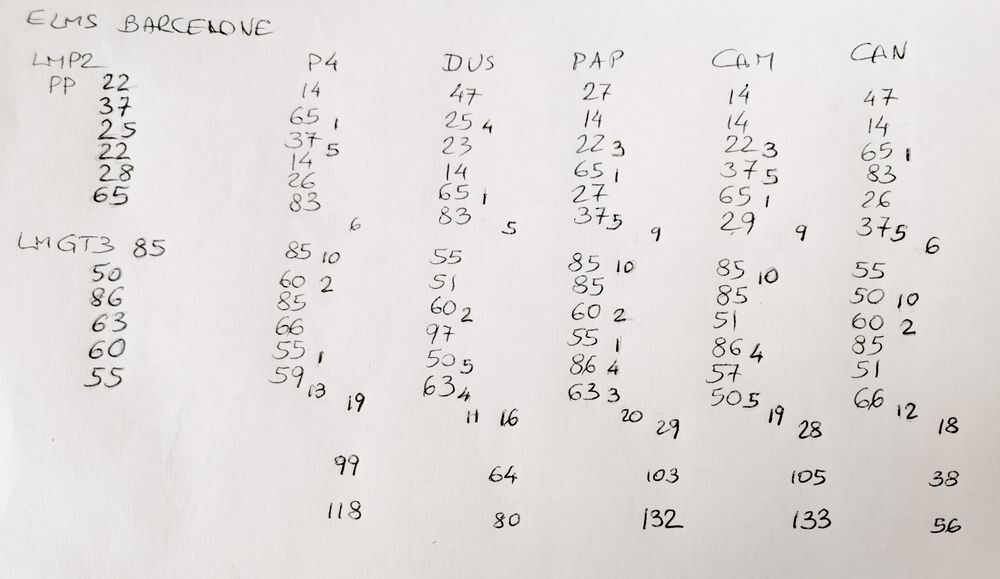 ELMS BARCELONE
LMP2 P4 DUS PAP CAM CAN
PP 22 14 47 27 14 47
37 65 1 25 4 14 14 14
25 37 5 23 22 3 22 3 65 1
22 14 14 65 1 37 5 83
28 26 65 1 27 65 1 26
65 83 83 37 5 29 37 5
6 5 9 9 6
LMGT3 85 85 10 55 85 10 85 10 55
50 60 2 51 85 85 50 10
86 85 60 2 60 2 51 60 2
63 66 97 55 1 86 4 85
60 55 1 50 5 86 4 57 51
55 59 63 4 63 3 50 5 66
13 19 11 16 20 29 19 28 12 18
99 64 103 105 38
118 80 132 133 56